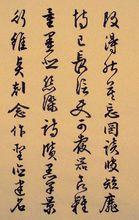 改得能莫忘罔談彼短靡
恃己長信使可覆器欲難
量墨悲絲染詩讚羔羊景
行維賢剋念作聖德建名